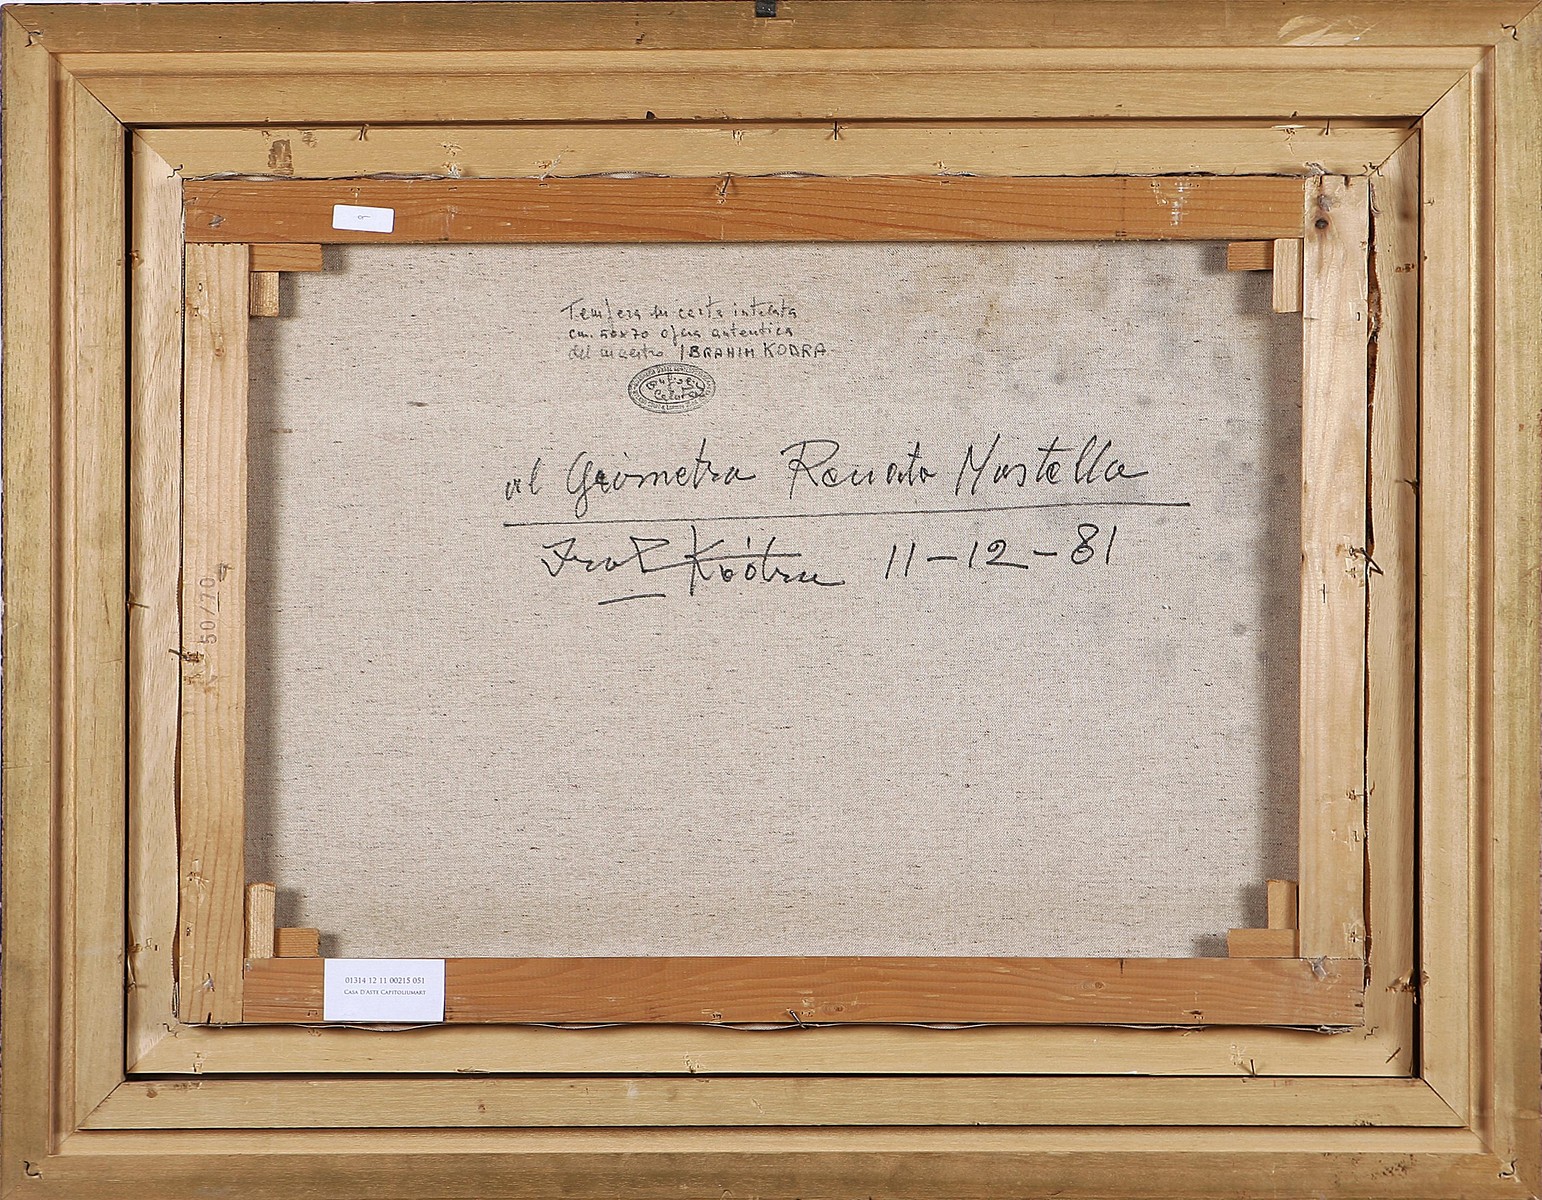 9
Tempera su carta intelata
cm. 50x70 opera autentica
del maestro IBRAHIM KODRA
al Geometra Renato Mastella
Kodra 11-12-81
50/70
01314 12 11 00215 051
Casa D'Aste Capitoliumart